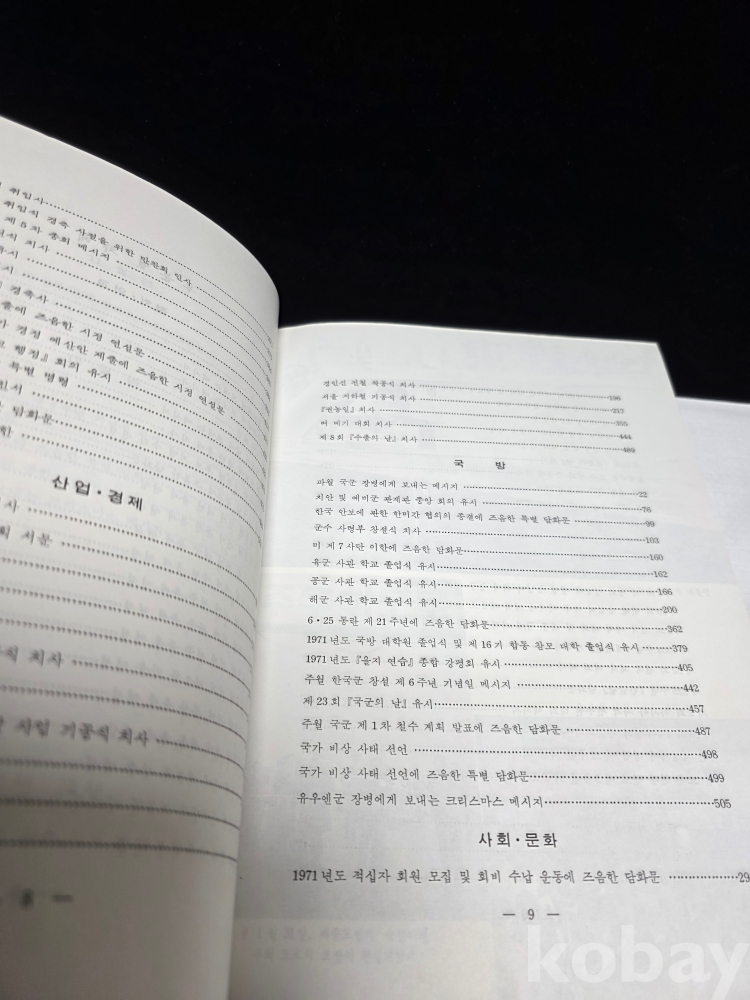 취임사
취임식 경축 사절을 위한 만찬회 인사
제 5 차 총회 메시지
식 치사
유시
시
경축사
출에 즈음한 시정 연설문
가 경정 예산안 제출에 즈음한 시정 연설문
행정』 회의 유시
특별 명령
서
담화문
산업·경제
사
서문
식 치사
사업 기공식 치사
— 8 —
경인선 전철 착공식 치사 196
서울 지하철 기공식 치사 217
『권농일』 치사 255
벼 베기 대회 치사 444
제 8 회 『수출의 날』 치사 489
국 방
파월 국군 장병에게 보내는 메시지 22
치안 및 예비군 관계관 중앙 회의 유시 76
한국 안보에 관한 한미간 협의의 종결에 즈음한 특별 담화문 99
군수 사령부 창설식 치사 103
미 제 7 사단 이한에 즈음한 담화문 160
육군 사관 학교 졸업식 유시 162
공군 사관 학교 졸업식 유시 166
해군 사관 학교 졸업식 유시 200
6·25 동란 제 21 주년에 즈음한 담화문 362
1971년도 국방 대학원 졸업식 및 제 16 기 합동 참모 대학 졸업식 유시 379
1971년도 『을지 연습』 종합 강평회 유시 405
주월 한국군 창설 제 6 주년 기념일 메시지 442
제 23 회 『국군의 날』 유시 457
주월 국군 제 1 차 철수 계획 발표에 즈음한 담화문 487
국가 비상 사태 선언 498
국가 비상 사태 선언에 즈음한 특별 담화문 499
유우엔군 장병에게 보내는 크리스마스 메시지 505
사회·문화
1971년도 적십자 회원 모집 및 회비 수납 운동에 즈음한 담화문 29
— 9 —
kobay